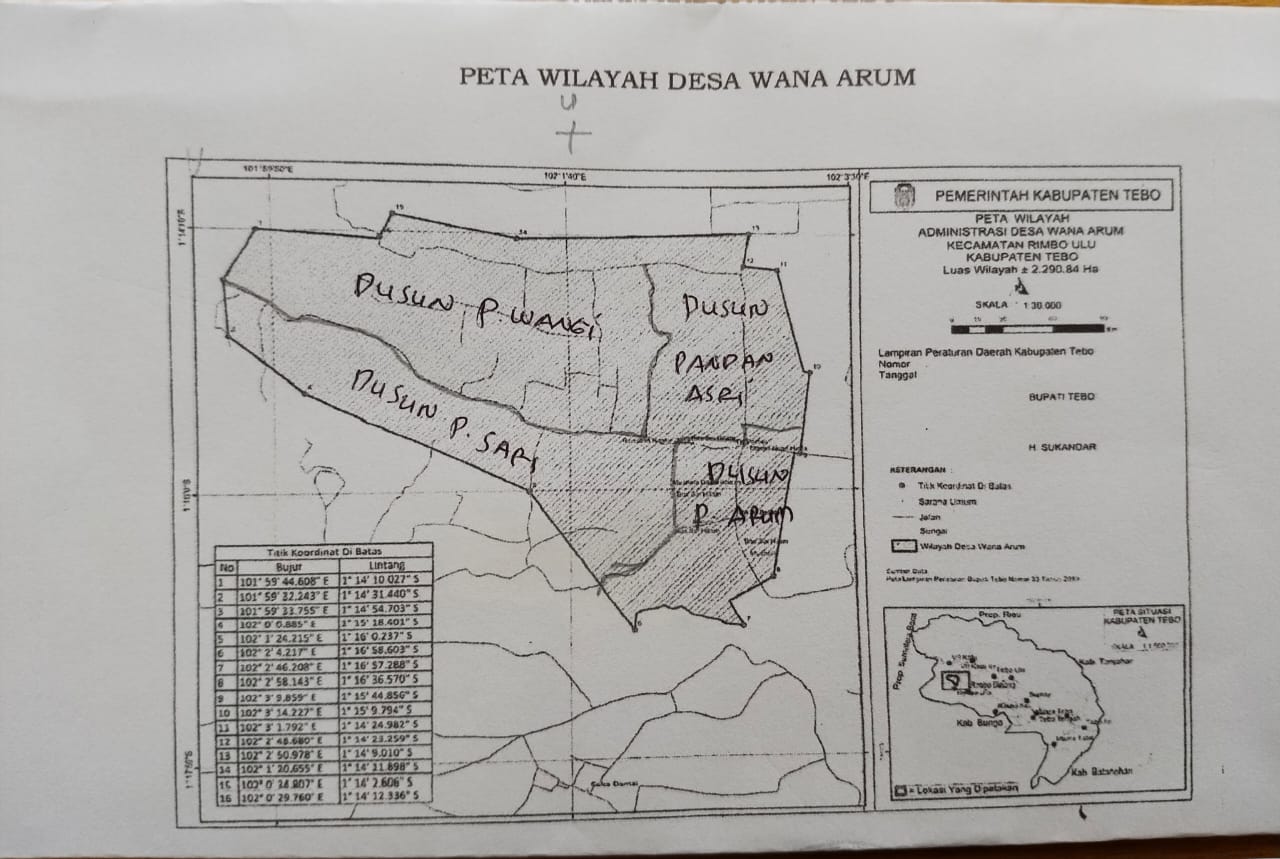 PETA WILAYAH DESA WANA ARUM
U
101°59'50"E
102°1'40"E
102°3'30"E
1°14'10"S
1°16'0"S
1°17'50"S
15
14
13
12
11
10
DUSUN P. WANGI
DUSUN
PANDAN
ASRI
DUSUN P. SARI
DUSUN
P ARUM
Suka Damai
Titik Koordinat Di Batas
No Bujur Lintang
1 101° 59' 44.608" E 1° 14' 10.027" S
2 101° 59' 32.243" E 1° 14' 31.440" S
3 101° 59' 33.755" E 1° 14' 54.703" S
4 102° 0' 6.885" E 1° 15' 18.401" S
5 102° 1' 24.215" E 1° 16' 0.237" S
6 102° 2' 4.217" E 1° 16' 58.603" S
7 102° 2' 46.208" E 1° 16' 57.288" S
8 102° 2' 58.143" E 1° 16' 36.570" S
9 102° 3' 9.859" E 1° 15' 44.856" S
10 102° 3' 14.227" E 1° 15' 9.794" S
11 102° 3' 1.792" E 1° 14' 24.982" S
12 102° 2' 48.680" E 1° 14' 23.259" S
13 102° 2' 50.978" E 1° 14' 9.010" S
14 102° 1' 20.655" E 1° 14' 11.898" S
15 102° 0' 34.807" E 1° 14' 2.606" S
16 102° 0' 29.760' E 1° 14' 12.336" S
PEMERINTAH KABUPATEN TEBO
PETA WILAYAH
ADMINISTRASI DESA WANA ARUM
KECAMATAN RIMBO ULU
KABUPATEN TEBO
Luas Wilayah ± 2.290.84 Ha
SKALA 1:30.000
Km
Lampiran Peraturan Daerah Kabupaten Tebo
Nomor
Tanggal
BUPATI TEBO
H. SUKANDAR
KETERANGAN :
Titik Koordinat Di Batas
Sarana Umum
Jalan
Sungai
Wilayah Desa Wana Arum
Sumber Data
Peta Lampiran Peraturan Bupati Tebo Nomor 33 Tahun
PETA SITUASI
KABUPATEN TEBO
SKALA
Prop. Riau
Prop Sumatera Barat
Kab Tanjabar
Tebo Ulu
Rimbo Bujang
Kab Bungo
Kab Batanghari
= Lokasi Yang Dipetakan